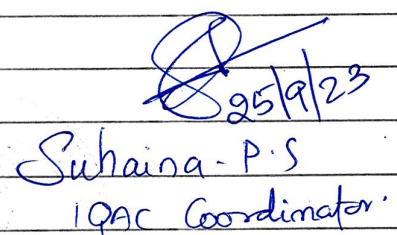 25/9/23
Suhaina - P.S
IQAC Coordinator.